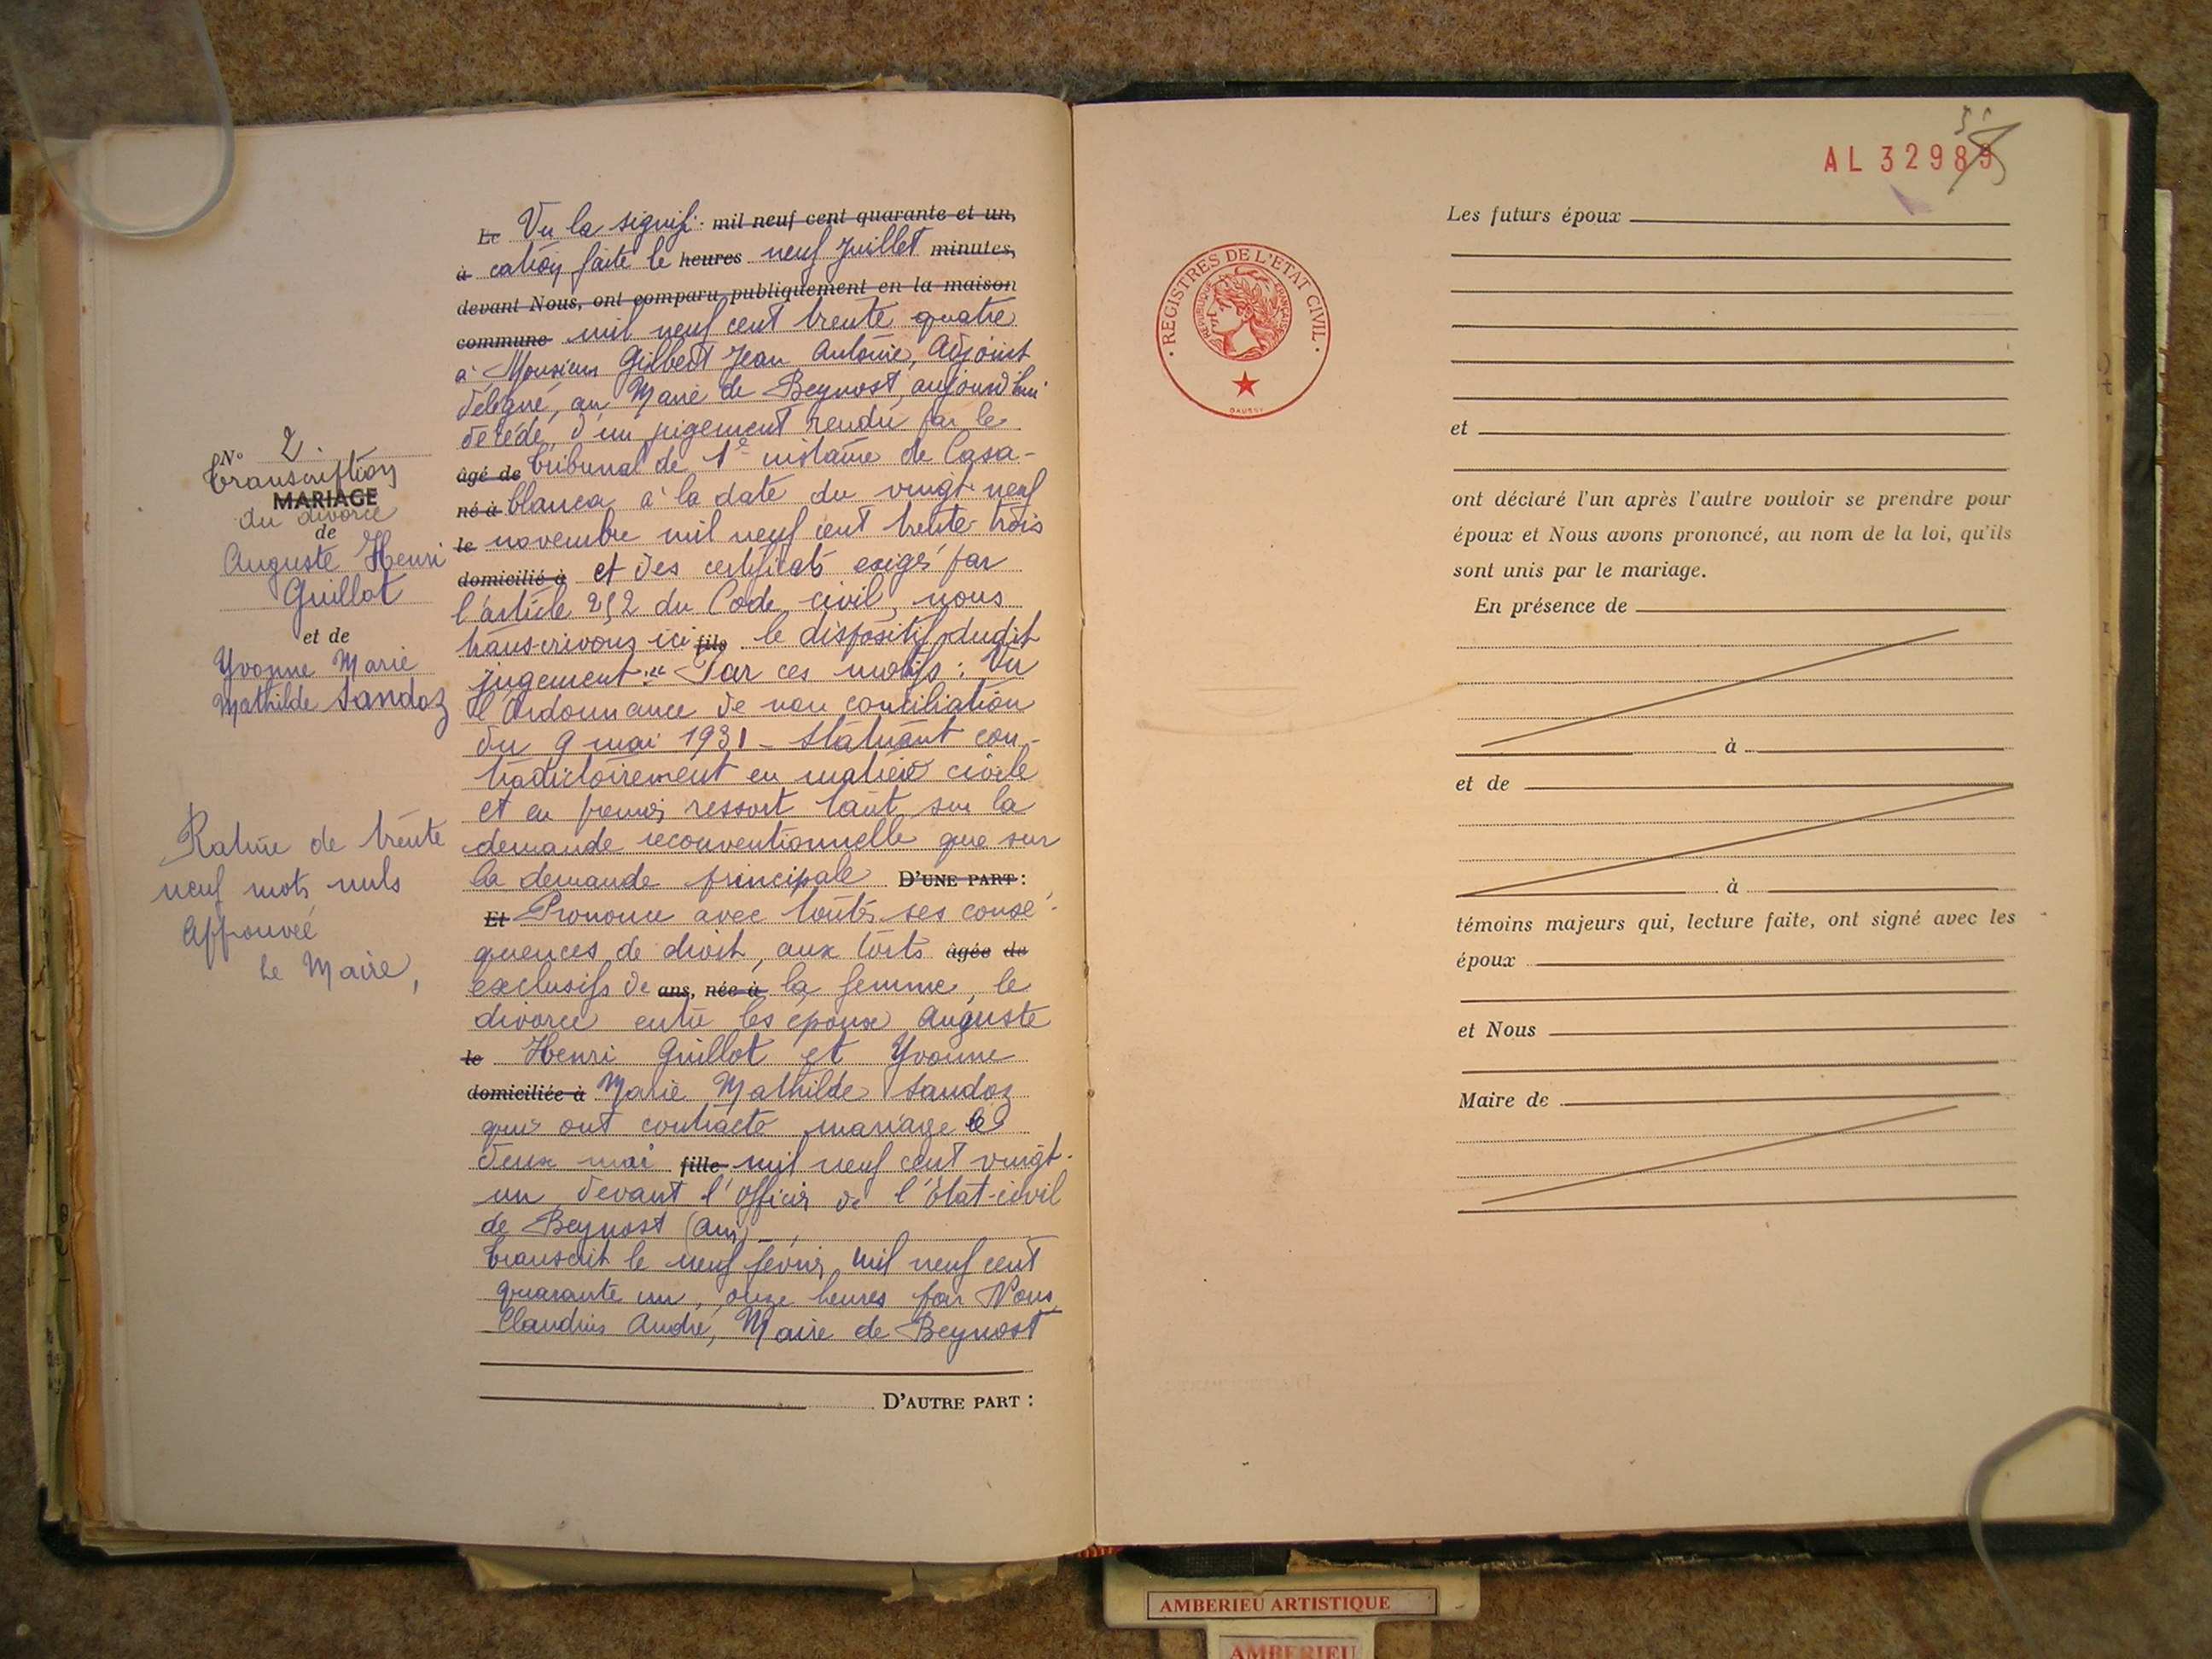 N° 2.
Transcription
MARIAGE
du divorce
de
Auguste Henri
Guillot
et de
Yvonne Marie
Mathilde Sandoz
Rature de trente
neuf mots nuls
Approuvée
Le Maire,
Le Vu la signifi- mil neuf cent quarante et un,
à cation faite le heures neuf Juillet minutes,
devant Nous, ont comparu publiquement en la maison
commune mil neuf cent trente quatre
à Monsieur Gilbert Jean Antoine, Adjoint
délégué, au Maire de Beynost, aujourd'hui
décédé, d'un jugement rendu par le
âgé de tribunal de 1e instance de Casa-
né à blanca à la date du vingt neuf
le novembre mil neuf cent trente trois
domicilié à et des certificats exigés par
l'article 252 du Code civil, nous
transcrivons ici fils le dispositif dudit
jugement : " Par ces motifs : Vu
l'Ordonnance de non conciliation
du 9 mai 1931 - Statuant con-
tradictoirement en matière civile
et en premier ressort tant sur la
demande reconventionnelle que sur
la demande principale D'UNE PART :
Et Prononce avec toutes ses consé-
quences de droit, aux torts âgée de
exclusifs de ans, née à la femme, le
divorce entre les époux Auguste
le Henri Guillot et Yvonne
domiciliée à Marie Mathilde Sandoz
qui ont contracté mariage le
deux mai fille mil neuf cent vingt-
un devant l'officier de l'Etat-civil
de Beynost (Ain) -
Transcrit le neuf février mil neuf cent
quarante un, onze heures par Nous,
Claudius André, Maire de Beynost
D'AUTRE PART :
AL 32989
REGISTRES DE L'ETAT CIVIL
REPUBLIQUE FRANÇAISE
Les futurs époux
et
ont déclaré l'un après l'autre vouloir se prendre pour
époux et Nous avons prononcé, au nom de la loi, qu'ils
sont unis par le mariage.
En présence de
à
et de
à
témoins majeurs qui, lecture faite, ont signé avec les
époux
et Nous
Maire de
AMBERIEU ARTISTIQUE
AMBERIEU